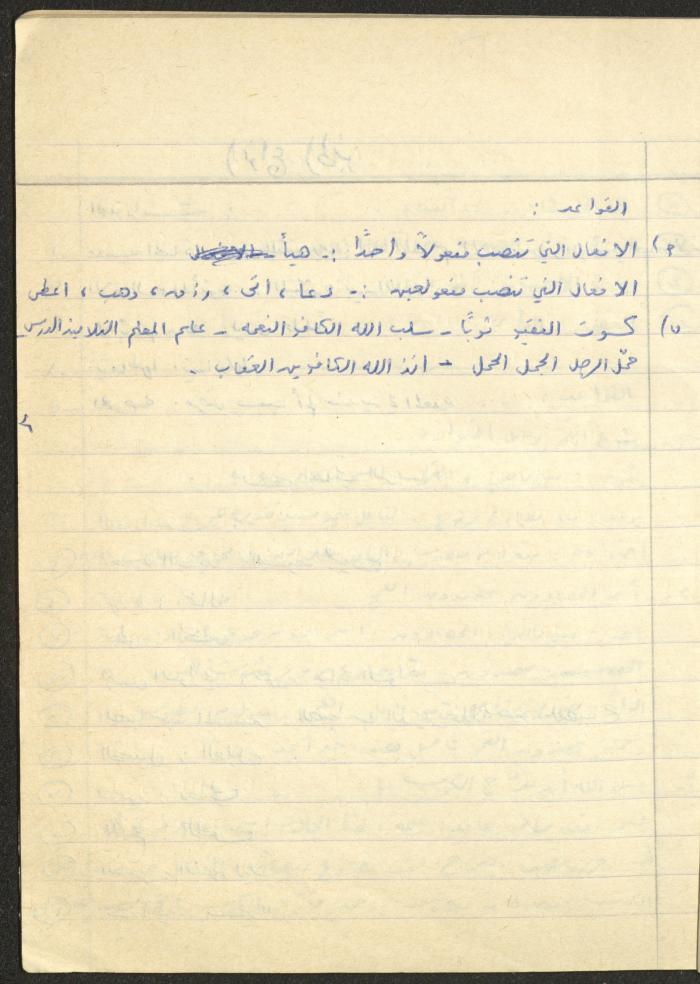 القواعد :
١) الافعال التي تنصب مفعولاً واحدًا :- هيأ -
الافعال التي تنصب مفعولين :- دعا ، اتى ، رزق ، وهب ، اعطى
٢) كسوت الفقير ثوبًا - سلب الله الكافر النعمه - علم المعلم التلاميذ الدرس
حمّل الرجل الجمل الحمل - انذر الله الكافرين العقاب .